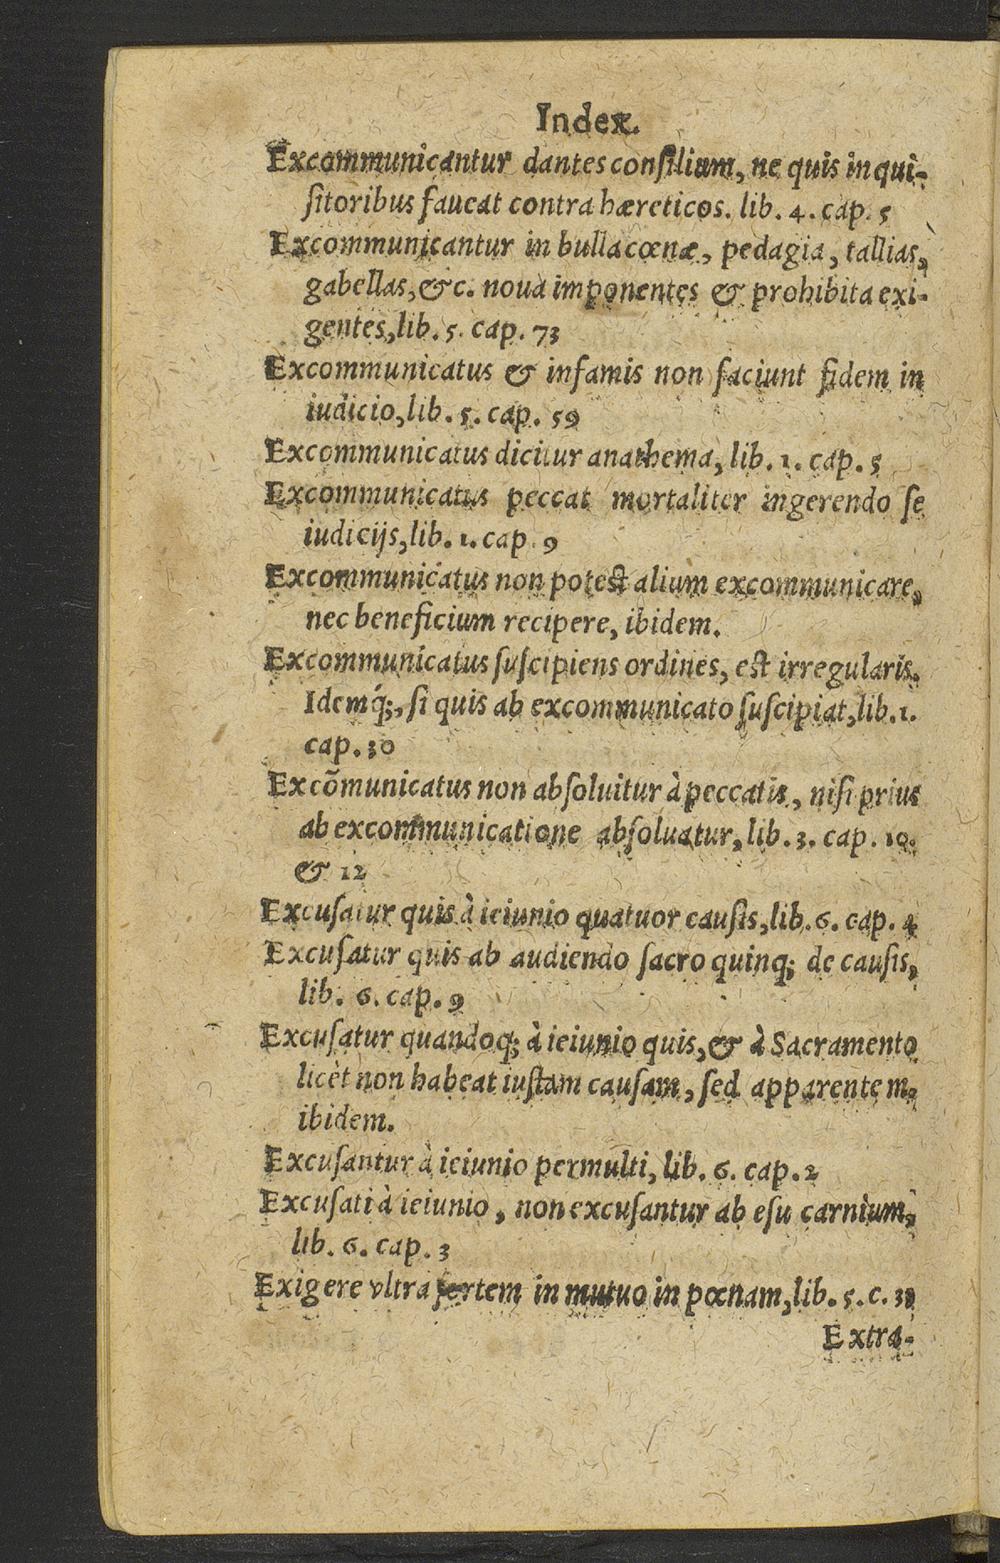 Index.
Excommunicantur dantes conſilium, ne quis inqui-
ſitoribus faueat contra hæreticos. lib. 4. cap. 5
Excommunicantur in bulla cœnæ, pedagia, tallias,
gabellas, &c. noua imponentes & prohibita exi-
gentes, lib. 5. cap. 73
Excommunicatus & infamis non faciunt fidem in
iudicio, lib. 5. cap. 59
Excommunicatus dicitur anathema, lib. 1. cap. 5
Excommunicatus peccat mortaliter ingerendo ſe
iudicijs, lib. 1. cap. 9
Excommunicatus non poteſt alium excommunicare,
nec beneficium recipere, ibidem.
Excommunicatus ſuſcipiens ordines, eſt irregularis.
Idemq́;, ſi quis ab excommunicato ſuſcipiat, lib. 1.
cap. 30
Excõmunicatus non abſoluitur à peccatis, niſi prius
ab excommunicatione abſoluatur, lib. 3. cap. 10.
& 12
Excuſatur quis à ieiunio quatuor cauſis, lib. 6. cap. 4
Excuſatur quis ab audiendo ſacro quinq; de cauſis,
lib. 6. cap. 9
Excuſatur quandoq; à ieiunio quis, & à Sacramento
licèt non habeat iuſtam cauſam, ſed apparentem,
ibidem.
Excuſantur à ieiunio permulti, lib. 6. cap. 2
Excuſati à ieiunio, non excuſantur ab eſu carnium,
lib. 6. cap. 3
Exigere vltra ſortem in mutuo in pœnam, lib. 5. c.
Extra-